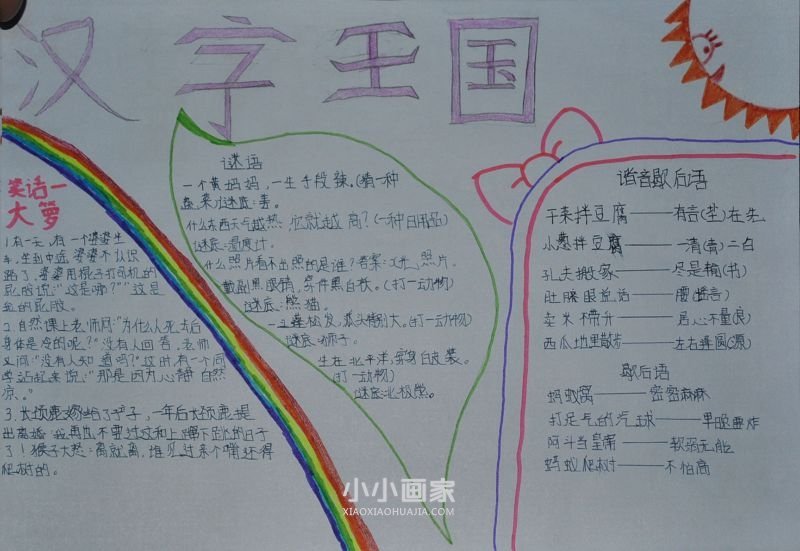 汉字王国
笑话一
大箩
1.有一天,有一个婆婆坐
车,坐到中途婆婆不认识
路了,婆婆用棍子打司机的
屁股说:"这是哪?""这是
我的屁股。
2.自然课上老师问:"为什么人死后
身体是冷的呢?"没有人回答.老师
又问:"没有人知道吗?"这时有一个同
学站起来说:"那是因为心静自然
凉。"
3.长颈鹿嫁给了猴子,一年后长颈鹿提
出离婚:我再也不要过这种上蹿下跳的日子
了!猴子大怒:离就离,谁见过亲个嘴还得
爬树的。
谜语
一个黄妈妈,一生手段辣。(猜一种
蔬菜)谜底:姜。
什么东西天气越热,它就越高?(一种日用品)
谜底:温度计。
什么照片看不出照的是谁?答案:X光照片
戴副黑眼镜,穿件黑白袄。(打一动物)
谜底:熊猫。
头特别大。(打一动物)
谜底:狮子。
生在北平洋,穿身白皮袋。
(打一动物)
谜底:北极熊。
谐音歇后语
干菜拌豆腐——有言(盐)在先
小葱拌豆腐——一清(青)二白
孔夫搬家——尽是输(书)
肚脐眼说话——腰(谣言)
卖米不带升——居心不量(良)
西瓜地里散步——左右逢圆(源)
歇后语
蚂蚁窝——密密麻麻
打足气的汽球——早晚要炸
阿斗当皇帝——软弱无能
蚂蚁爬树——不怕高
小小画家
XIAOXIAOHUAJIA.COM